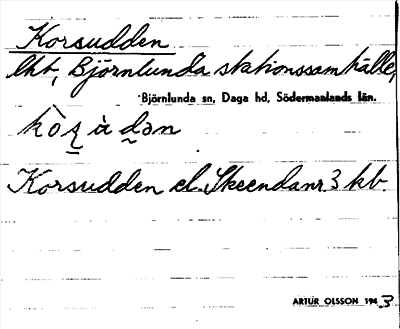 Korsudden
lht, Björnlunda stationssamhälle,
Björnlunda sn, Daga hd, Södermanlands län.
kòʂ̱à ḏən
Korsudden el. Skeenda nr 3 kb.
ARTUR OLSSON 1943